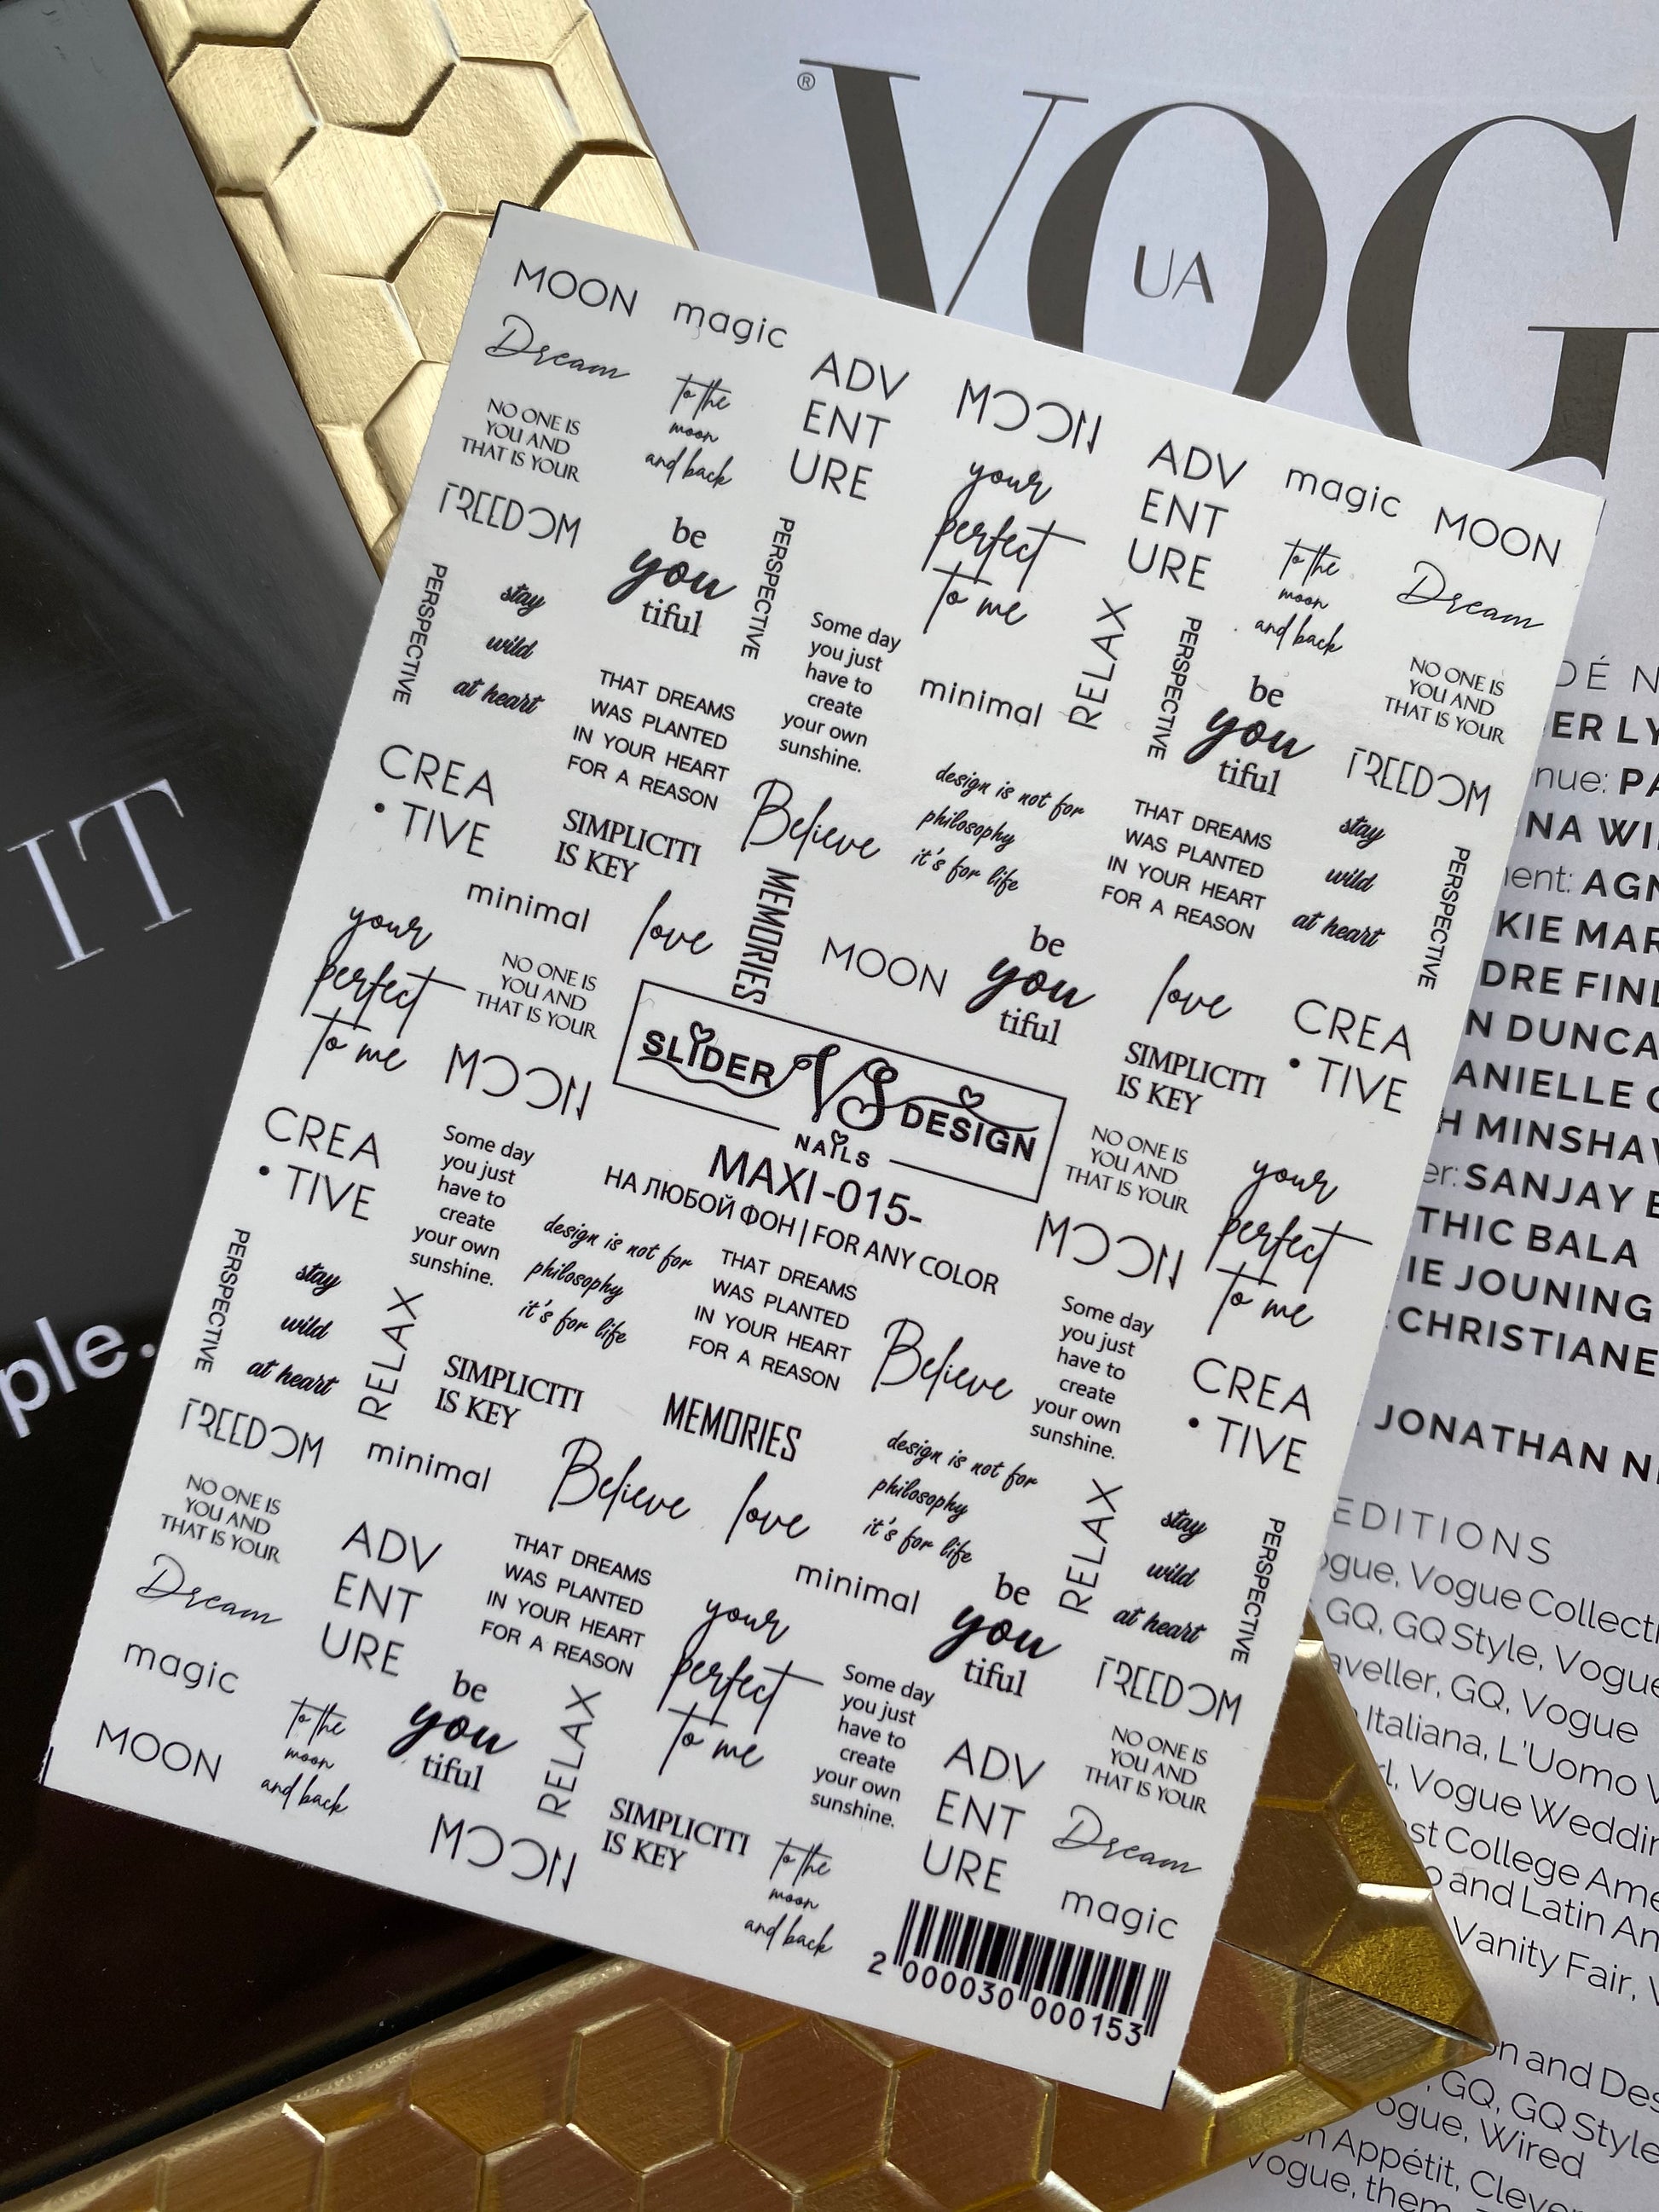 ®
VOG
UA
IT
ple.
MOON
magic
Dream
to the
moon
and back
ADV
ENT
URE
MOON
ADV
ENT
URE
magic
MOON
NO ONE IS
YOU AND
THAT IS YOUR
your
perfect
to me
to the
moon
and back
Dream
FREEDOM
be
you
tiful
PERSPECTIVE
PERSPECTIVE
stay
wild
at heart
Some day
you just
have to
create
your own
sunshine.
minimal
RELAX
PERSPECTIVE
be
you
tiful
NO ONE IS
YOU AND
THAT IS YOUR
FREEDOM
THAT DREAMS
WAS PLANTED
IN YOUR HEART
FOR A REASON
CREA
• TIVE
SIMPLICITI
IS KEY
Believe
design is not for
philosophy
it's for life
THAT DREAMS
WAS PLANTED
IN YOUR HEART
FOR A REASON
stay
wild
at heart
PERSPECTIVE
minimal
love
MEMORIES
MOON
be
you
tiful
love
CREA
• TIVE
your
perfect
to me
NO ONE IS
YOU AND
THAT IS YOUR
MOON
SLIDER VS DESIGN
NAILS
MAXI -015-
НА ЛЮБОЙ ФОН | FOR ANY COLOR
SIMPLICITI
IS KEY
NO ONE IS
YOU AND
THAT IS YOUR
your
perfect
to me
MOON
CREA
• TIVE
Some day
you just
have to
create
your own
sunshine.
design is not for
philosophy
it's for life
THAT DREAMS
WAS PLANTED
IN YOUR HEART
FOR A REASON
Believe
Some day
you just
have to
create
your own
sunshine.
CREA
• TIVE
PERSPECTIVE
stay
wild
at heart
RELAX
SIMPLICITI
IS KEY
MEMORIES
FREEDOM
minimal
Believe
love
design is not for
philosophy
it's for life
RELAX
stay
wild
at heart
PERSPECTIVE
NO ONE IS
YOU AND
THAT IS YOUR
ADV
ENT
URE
THAT DREAMS
WAS PLANTED
IN YOUR HEART
FOR A REASON
minimal
be
you
tiful
FREEDOM
Dream
your
perfect
to me
magic
MOON
to the
moon
and back
be
you
tiful
RELAX
Some day
you just
have to
create
your own
sunshine.
ADV
ENT
URE
NO ONE IS
YOU AND
THAT IS YOUR
MOON
SIMPLICITI
IS KEY
to the
moon
and back
Dream
magic
2 000030 000153
DÉ N
ER LY
nue: PA
NA WI
ent: AGN
KIE MAR
DRE FIN
N DUNCA
ANIELLE
H MINSHA
er: SANJAY
THIC BALA
IE JOUNING
CHRISTIANE
JONATHAN N
EDITIONS
ogue, Vogue Collecti
GQ, GQ Style, Vogue
aveller, GQ, Vogue
Italiana, L'Uomo V
rl, Vogue Weddin
st College Ame
and Latin Am
Vanity Fair, V
on and Des
GQ, GQ Style
ogue, Wired
on Appétit, Clever
Vogue, them